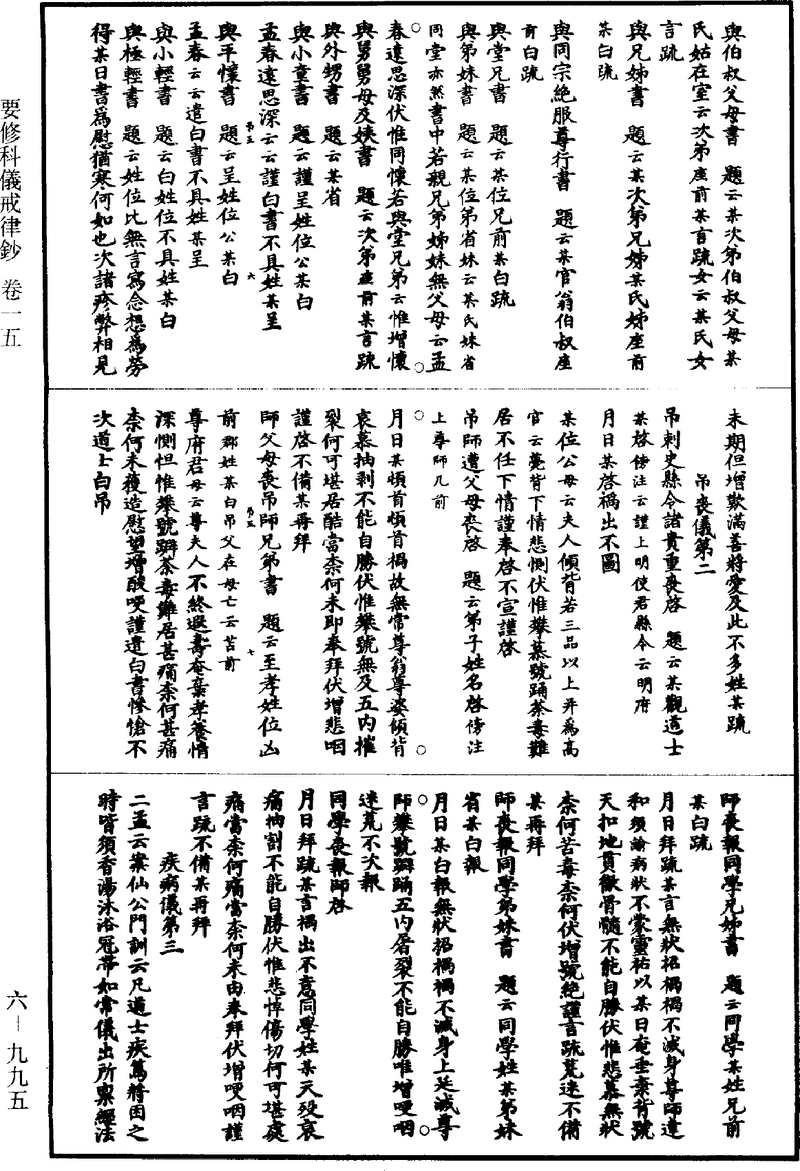 與伯叔父母書　題云某次第伯叔父母某
氏姑在室云次第座前某言疏女云某氏女
言疏
與兄姊書　題云某次第兄姊某氏姊座前
某白疏
與同宗絶服尊行書　題云某官翁伯叔座
前白疏
與堂兄書　題云某位兄前某白疏
與弟妹書　題云某位弟省妹云某氏妹省
同堂亦然書中若親兄弟姊妹無父母云孟
春遠思深伏惟同懷若與堂兄弟云惟增懷
與舅舅母及姨書　題云次第座前某言疏
與外甥書　題云某省
與小童書　題云謹呈姓位公某白
孟春遠思深云云謹白書不具姓某呈
與平懷書　題云呈姓位公某白
孟春云云遣白書不具姓某呈
與小輕書　題云白姓位不具姓某白
與極輕書　題云姓位比無言寫念想為勞
得某日書為慰猶寒何如也次諸疹弊相見
未期但增歎滿善將愛及此不多姓某疏
吊喪儀第二
吊刺史縣令諸貴重喪啓　題云某觀道士
某啓傍注云謹上明使君縣令云明府
月日某啓禍出不圖
某位公母云夫人傾背若三品以上并為高
官云薨背下情悲惻伏惟攀慕號踊荼毒難
居不任下情謹奉啓不宣謹啓
吊師遭父母喪啓　題云弟子姓名啓傍注
上尊師几前
月日某頓首頓首禍故無常尊翁尊婆傾背
哀慕抽割不能自勝伏惟攀號無及五内摧
裂何可堪居酷當柰何未即奉拜伏增悲咽
謹啓不備某再拜
師父母喪吊師兄弟書　題云至孝姓位凶
前郡姓某白吊父在母亡云苦前
尊府君母云尊夫人不終遐壽奄棄孝養情
深惻怛惟攀號擗荼毒難居甚痛柰何甚痛
柰何未獲造慰望增酸哽謹遣白書慘愴不
次道士白吊
師喪報同學兄姊書　題云同學某姓兄前
某白疏
月日拜疏某言無狀招禍禍不滅身尊師違
和須諭痾狀不蒙靈祐以某日奄垂棄背號
天扣地貫徹骨髓不能自勝伏惟悲慕無狀
柰何苦毒柰何伏增號絶謹言疏荒迷不備
某再拜
師喪報同學弟妹書　題云同學姓某弟妹
省某白報
月日某白報無狀招禍禍不滅身上延滅尊
師攀號擗踊五内屠裂不能自勝唯增哽咽
迷荒不次報
同學喪報師啓
月日拜疏某言禍出不意同學姓某夭歿哀
痛抽割不能自勝伏惟悲悼傷切何可堪處
痛當柰何痛當柰何未由奉拜伏增哽咽謹
言疏不備某再拜
疾病儀第三
二孟云案仙公門訓云凡道士疾篤將困之
時皆須香湯沐浴冠帶如常儀出所禀經法
要修科儀戒律鈔　卷一五
六—九九五